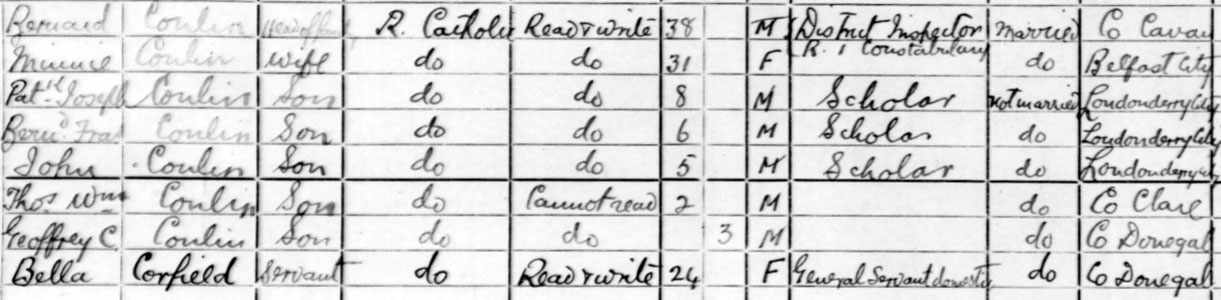 Bernard Conlin Head of family R. Catholic Read & write 38 M District Inspector R. I Constabulary Married Co Cavan
Minnie Conlin Wife do do 31 F do Belfast City
Patk Joseph Conlin Son do do 8 M Scholar Not married Londonderry City
Bernd Fras Conlin Son do do 6 M Scholar do Londonderry City
John Conlin Son do do 5 M Scholar do Londonderry City
Thos Wm Conlin Son do Cannot read 2 M do Co Clare
Geoffrey C Conlin Son do do 3 M do Co Donegal
Bella Corfield Servant do Read & write 24 F General Servant domestic do Co Donegal